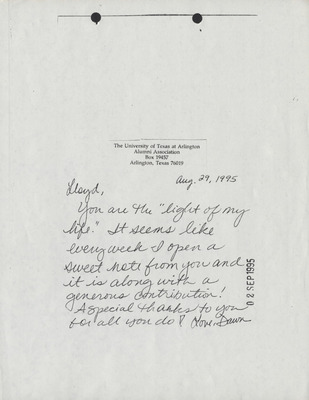 The University of Texas at Arlington
Alumni Association
Box 19457
Arlington, Texas 76019
Aug. 29, 1995
Lloyd,
You are the "light of my
life." It seems like
every week I open a
sweet note from you and
it is along with a
generous contribution!
A special thanks to you
for all you do! Love, Dawn
02 SEP 1995